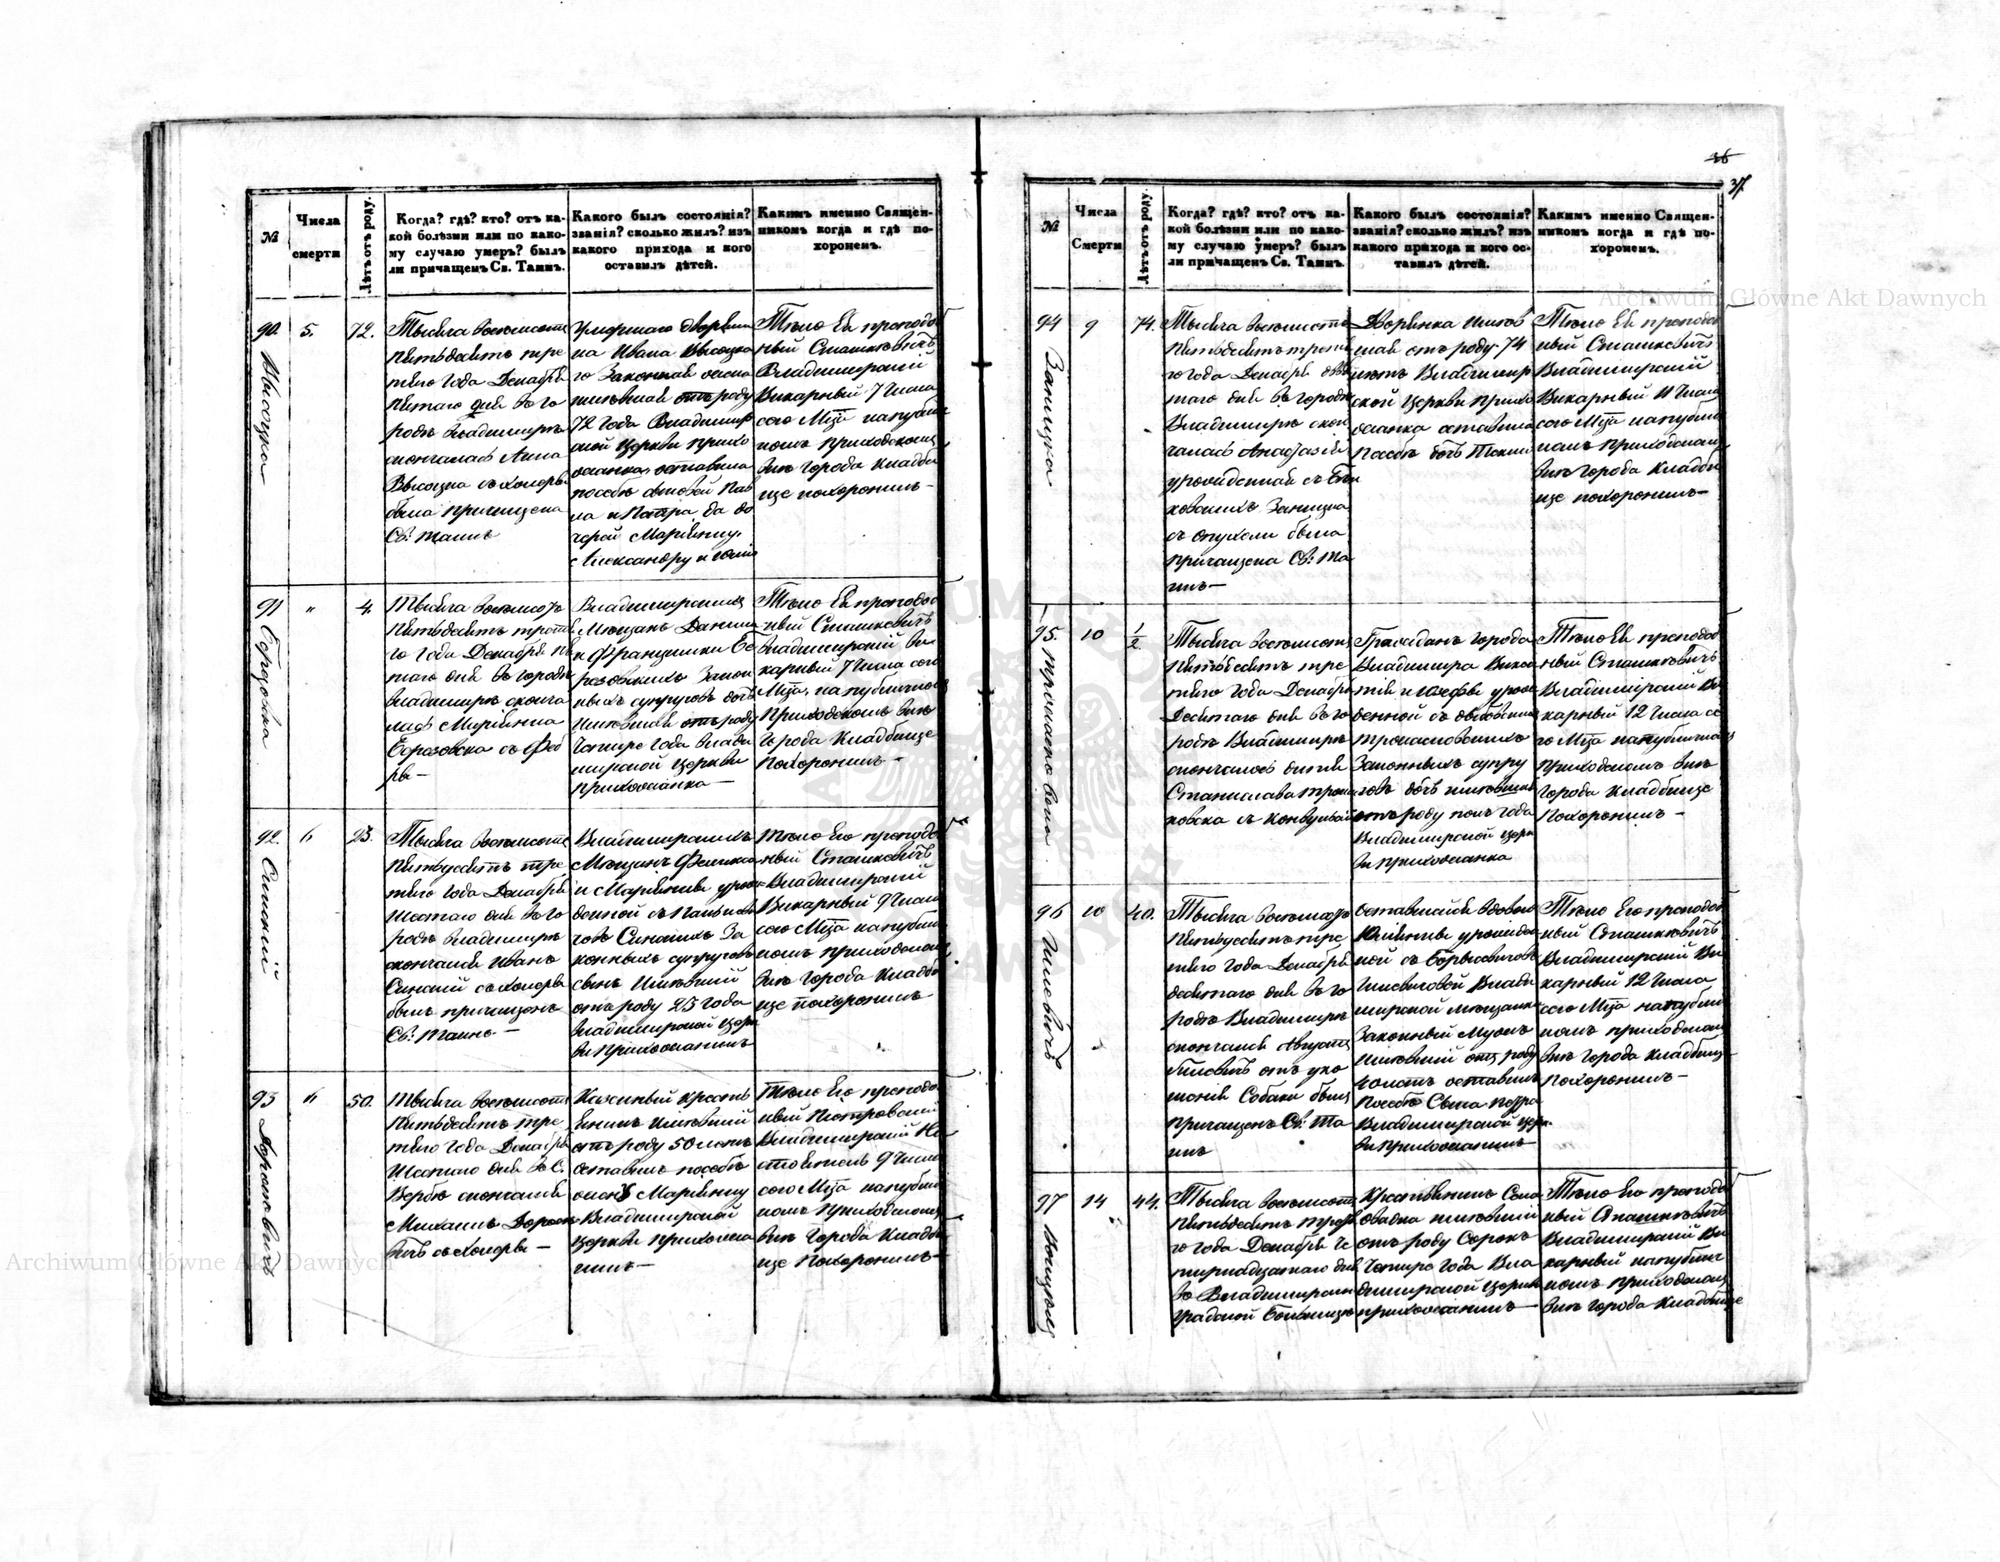 36
37
№
Числа
смерти
Лѣтъ отъ роду.
Когда? гдѣ? кто? отъ ка-
кой болѣзни или по како-
му случаю умеръ? былъ
ли причащенъ Св. Таинъ.
Какого былъ состоянія?
званія? сколько жилъ? изъ
какого прихода и кого
оставилъ дѣтей.
Какимъ именно Священ-
никомъ когда и гдѣ по-
хороненъ.
90.
Высоцка
5.
72.
Тысяча восемьсотъ
пятьдесятъ тре
тяго года Декабря
пятаго дня въ го
родѣ Владимирѣ
скончалась Анна
Высоцка съ холеры
была причащена
Св. таинъ
умершаго дворяни
на Ивана Высоцка
го законная
имѣвшая отъ роду
72 года Владимир
ской церкви прихо
жанка, оставила
после сыновей Пав
ла и Петра да до
черей Маріянну
Александру и
Тѣло Ея преподо
бный Сташкевичъ
Владимирскій
Викарный 7 Числа
сего М-ца на публич
номъ приходскомъ
внѣ города кладби
ще похоронилъ—
91
4.
Тысяча восемьсотъ
пятьдесятъ треть
го года Декабря пя
таго дня въ городѣ
Владимирѣ сконча
лась Маріянна
съ
—
Владимирскихъ
Мещанъ
и Францишки
закон
ныхъ супруговъ дочь
имѣвшая отъ роду
Четыре года Влади
мирской церкви
прихожанка—
Тѣло Ея преподоб
ный Сташкевичъ
Владимирскій Ви
карный 7 Числа сего
М-ца, на публичномъ
Приходскомъ внѣ
города Кладбище
Похоронилъ—
92.
Синскій
6
23.
Тысяча восемьсотъ
пятьдесятъ тре
тяго года Декабря
шестаго дня въ го
родѣ Владимирѣ
скончался Иванъ
Синскій съ холеры
былъ причащенъ
Св. таинъ—
Владимирскихъ
Мещанъ
и Маріянны урож
денной съ
Синскихъ За
конныхъ супруговъ
сынъ Имѣвшій
отъ роду 23 года
Владимирской церк
ви Прихожанинъ
Тѣло Его преподо
бный Сташкевичъ
Владимирскій
Викарный 9 Числа
сего М-ца на публич
номъ приходскомъ
внѣ города Кладби
ще похоронилъ
93
50.
Тысяча восемьсотъ
пятьдесятъ тре
тяго года Декабря
Шестаго дня въ С.
Вербѣ скончался
Михаилъ
съ холеры—
Казенный крестья
нинъ имѣвшій
отъ роду 50 лѣтъ
оставилъ после
жену Маріянну
Владимирской
церкви прихожа
нинъ—
Тѣло Его преподо
бный Петровскій
Владимирскій На
стоятель 9 Числа
сего М-ца на публич
номъ приходскомъ
внѣ города Кладби
ще Похоронилъ—
№
Числа
Смерти
Лѣтъ отъ роду.
Когда? гдѣ? кто? отъ ка-
кой болѣзни или по како-
му случаю умеръ? былъ
ли причащенъ Св. Таинъ.
Какого былъ состоянія?
званія? сколько жилъ? изъ
какого прихода и кого ос-
тавилъ дѣтей.
Какимъ именно Священ-
никомъ когда и гдѣ по-
хороненъ.
94
9
74.
Тысяча восемьсотъ
пятьдесятъ третья
го года Декабря девя
таго дня въ городѣ
Владимирѣ скон
чалась Анастазія
урожденная съ
съ опухоли была
причащена Св. Та
инъ—
Дворянка имѣв
шая отъ роду 74
лѣтъ Владимир
ской церкви прихо
жанка оставила
после дочь
Тѣло Ея преподоб
ный Сташкевичъ
Владимирскій
Викарный 11 Числа
сего М-ца на публич
номъ Приходскомъ
внѣ города кладби
ще похоронилъ—
95.
10
1/2
Тысяча восемьсотъ
пятьдесятъ тре
тяго года Декабря
Десятаго дня въ го
родѣ Владимирѣ
скончалась дитя
Станислава
съ конвульсій
Гражданъ города
Владимира
и Юзефы урож
денной съ
Законныхъ супру
говъ дочь имѣвшая
отъ роду полъ года
Владимирской церк
ви прихожанка
Тѣло Ея преподоб
ный Сташкевичъ
Владимирскій Ви
карный 12 Числа се
го М-ца на публичномъ
приходскомъ внѣ
города кладбище
Похоронилъ—
96
10
40.
Тысяча восемьсотъ
пятьдесятъ тре
тяго года Декабря
десятаго дня въ го
родѣ Владимирѣ
скончался Августъ
отъ уку
шенія Собаки былъ
причащенъ Св. Та
инъ
Оставшейся вдовы
урожден
ной съ
Влади
мирской мещанки
законный Мужъ
Имѣвшій отъ роду
40 лѣтъ оставилъ
После Сына Петра
Владимирской церк
ви прихожанинъ
Тѣло Его преподоб
ный Сташкевичъ
Владимирскій Ви
карный 12 Числа
сего М-ца на публич
номъ приходскомъ
внѣ города кладбище
Похоронилъ—
97
14
44.
Тысяча восемьсотъ
пятьдесятъ треть
го года Декабря Че
тырнадцатаго дня
въ Владимирской
градской Больницѣ
Крестьянинъ
имѣвшій
отъ роду Сорокъ
Четыре года Вла
димирской церкви
прихожанинъ—
Тѣло Его преподоб
ный Сташкевичъ
Владимирскій Ви
карный на публич
номъ приходскомъ
внѣ города Кладбище
Archiwum Główne Akt Dawnych
Archiwum Główne Akt Dawnych